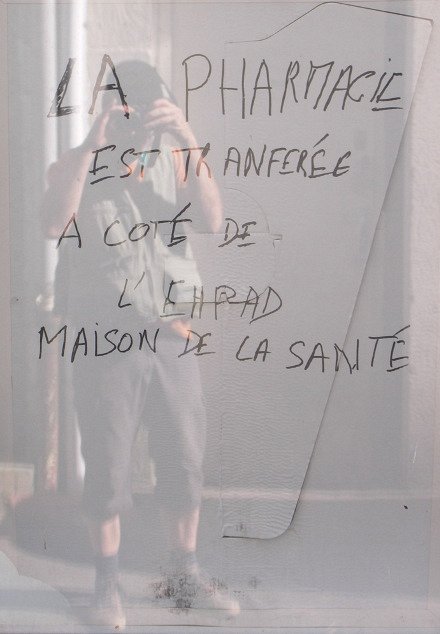 LA PHARMACIE
EST TRANFERÉE
A COTÉ DE
L' EHPAD
MAISON DE LA SANTÉ